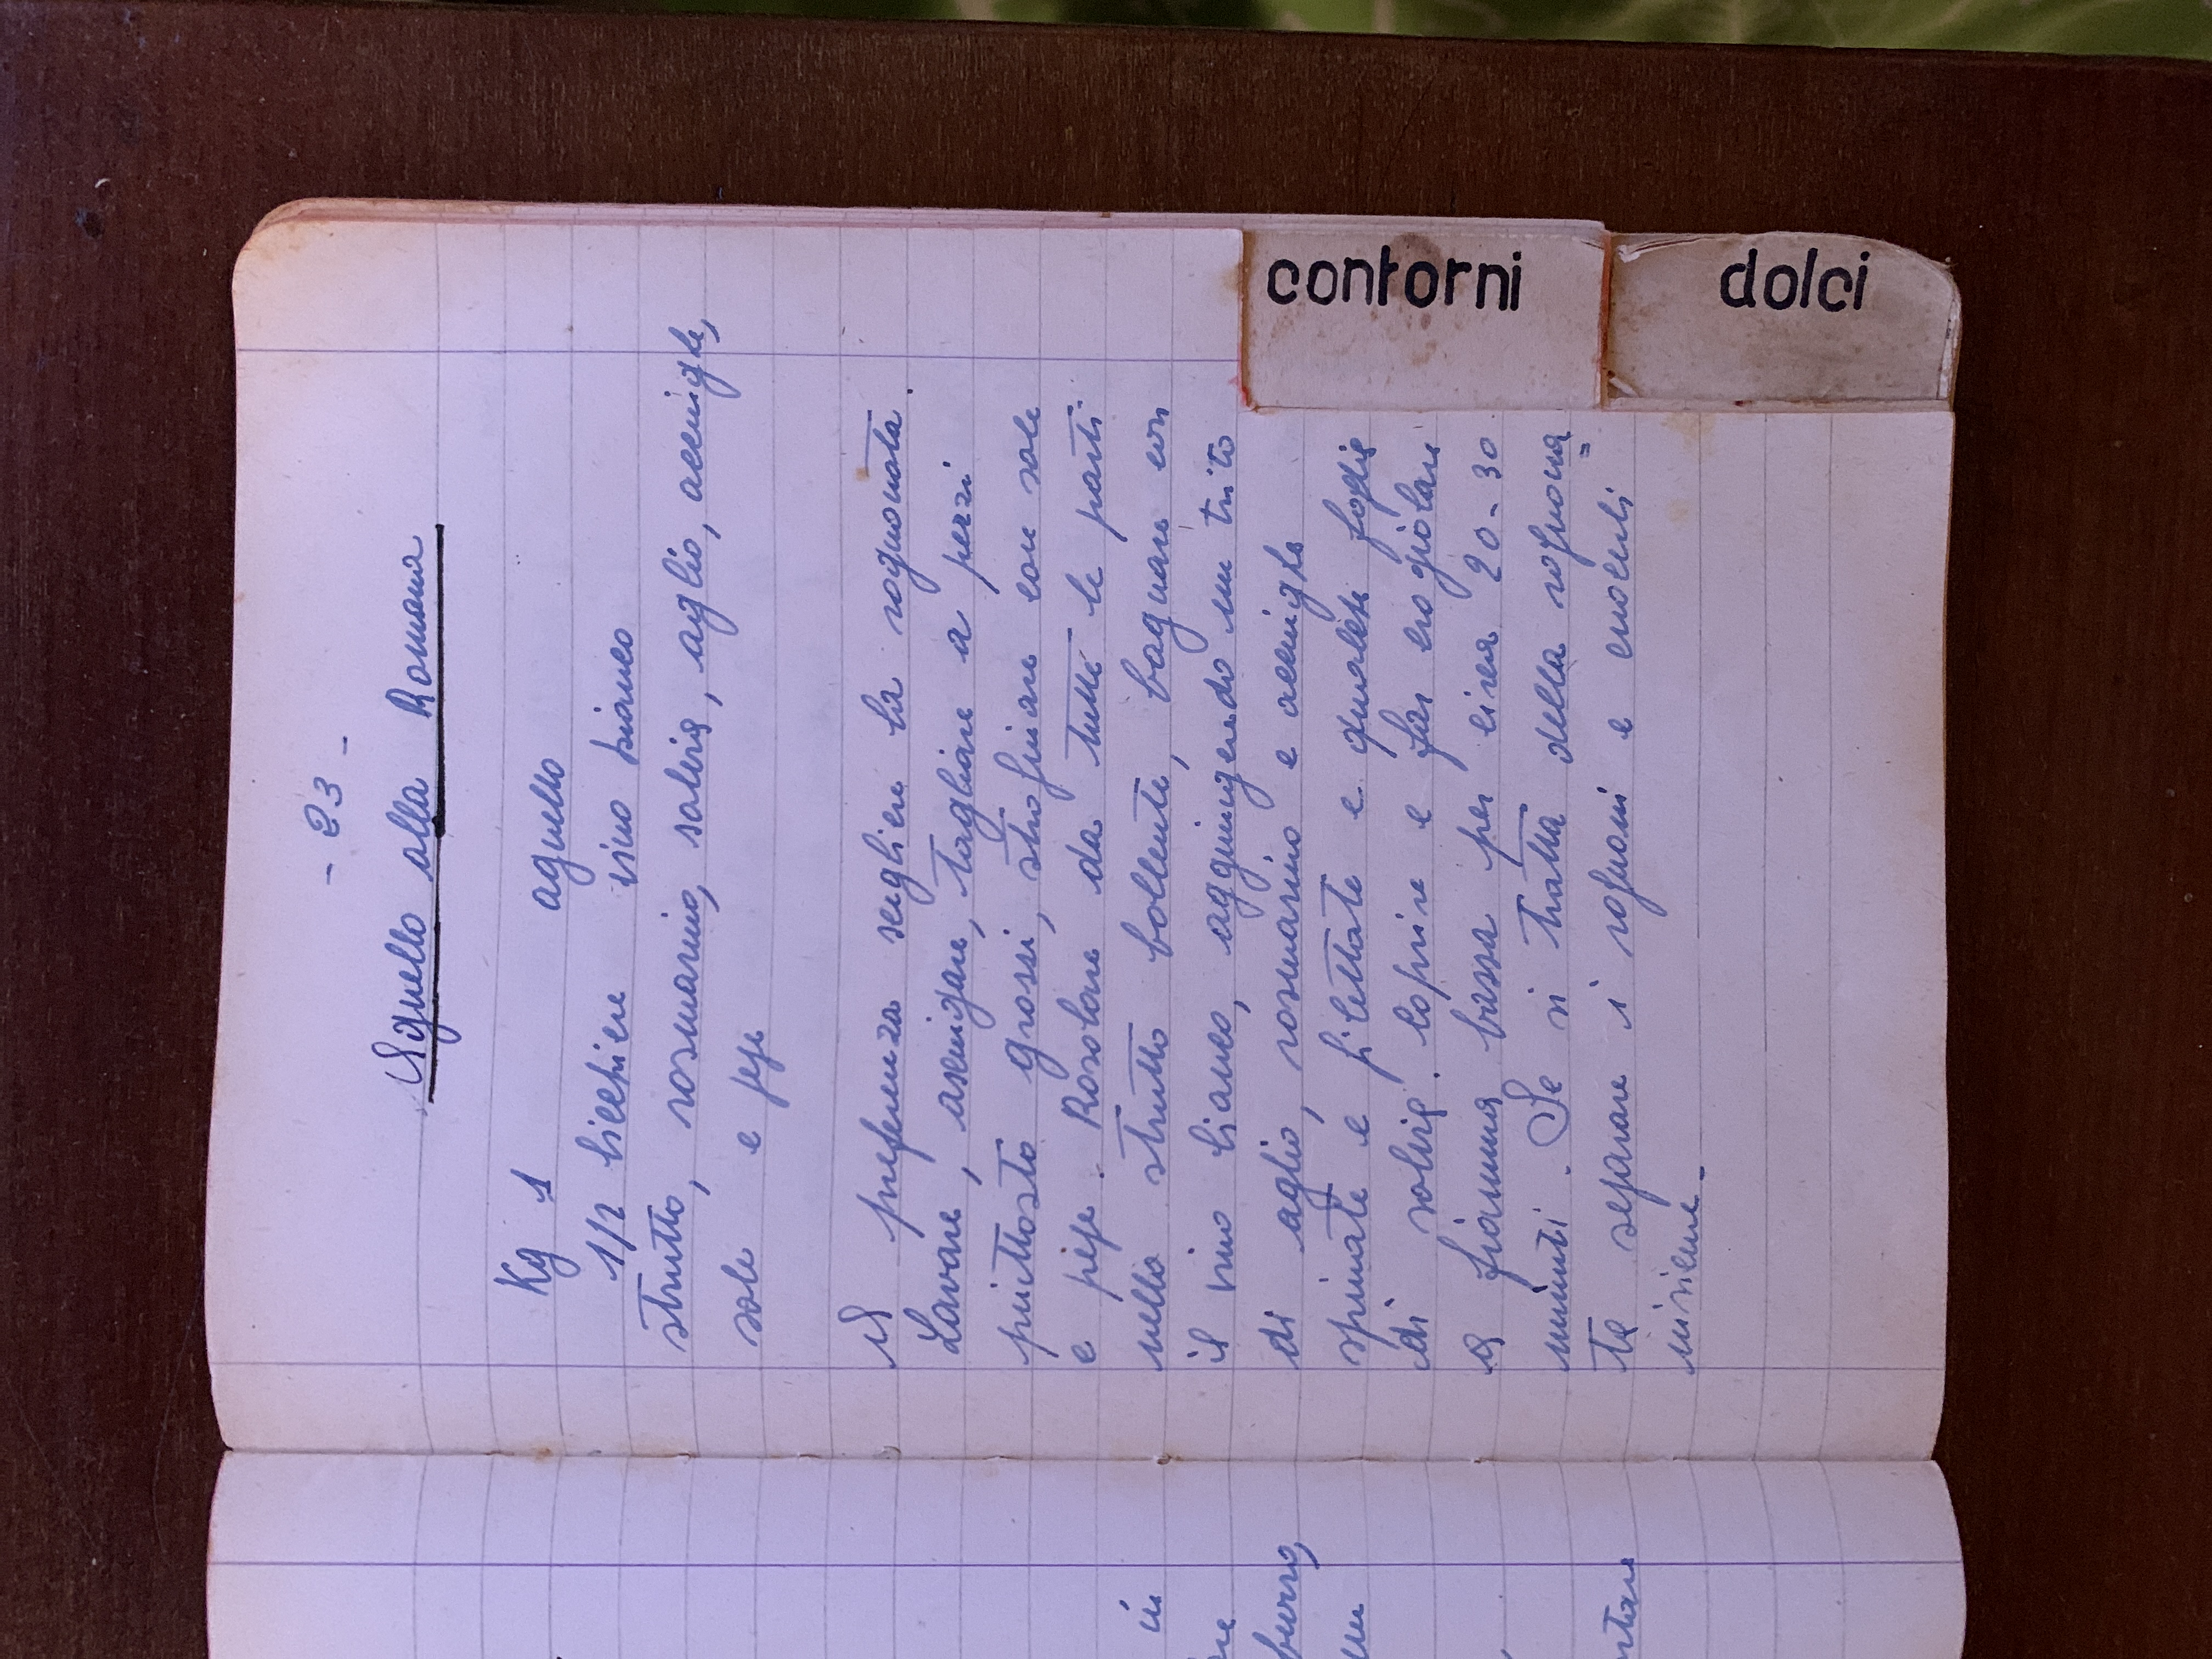 in
burro,
- 23 -
Agnello alla Romana
Kg 1 agnello
1/2 bicchiere vino bianco
strutto, rosmarino, salvia, aglio, acciughe,
sale e pepe
A preferenza scegliere la rognonata.
Lavare, asciugare, tagliare a pezzi
piuttosto grossi, strofinare con sale
e pepe. Rosolare da tutte le parti
nello strutto bollente, bagnare con
il vino bianco, aggiungendo un trito
di aglio, rosmarino e acciughe
spinate e filettate e qualche foglia
di salvia. Coprire e far crogiolare
a fiamma bassa per circa 20-30
minuti. Se si tratta della rognona=
ta separare i rognoni e cuocerli
insieme-
contorni
dolci